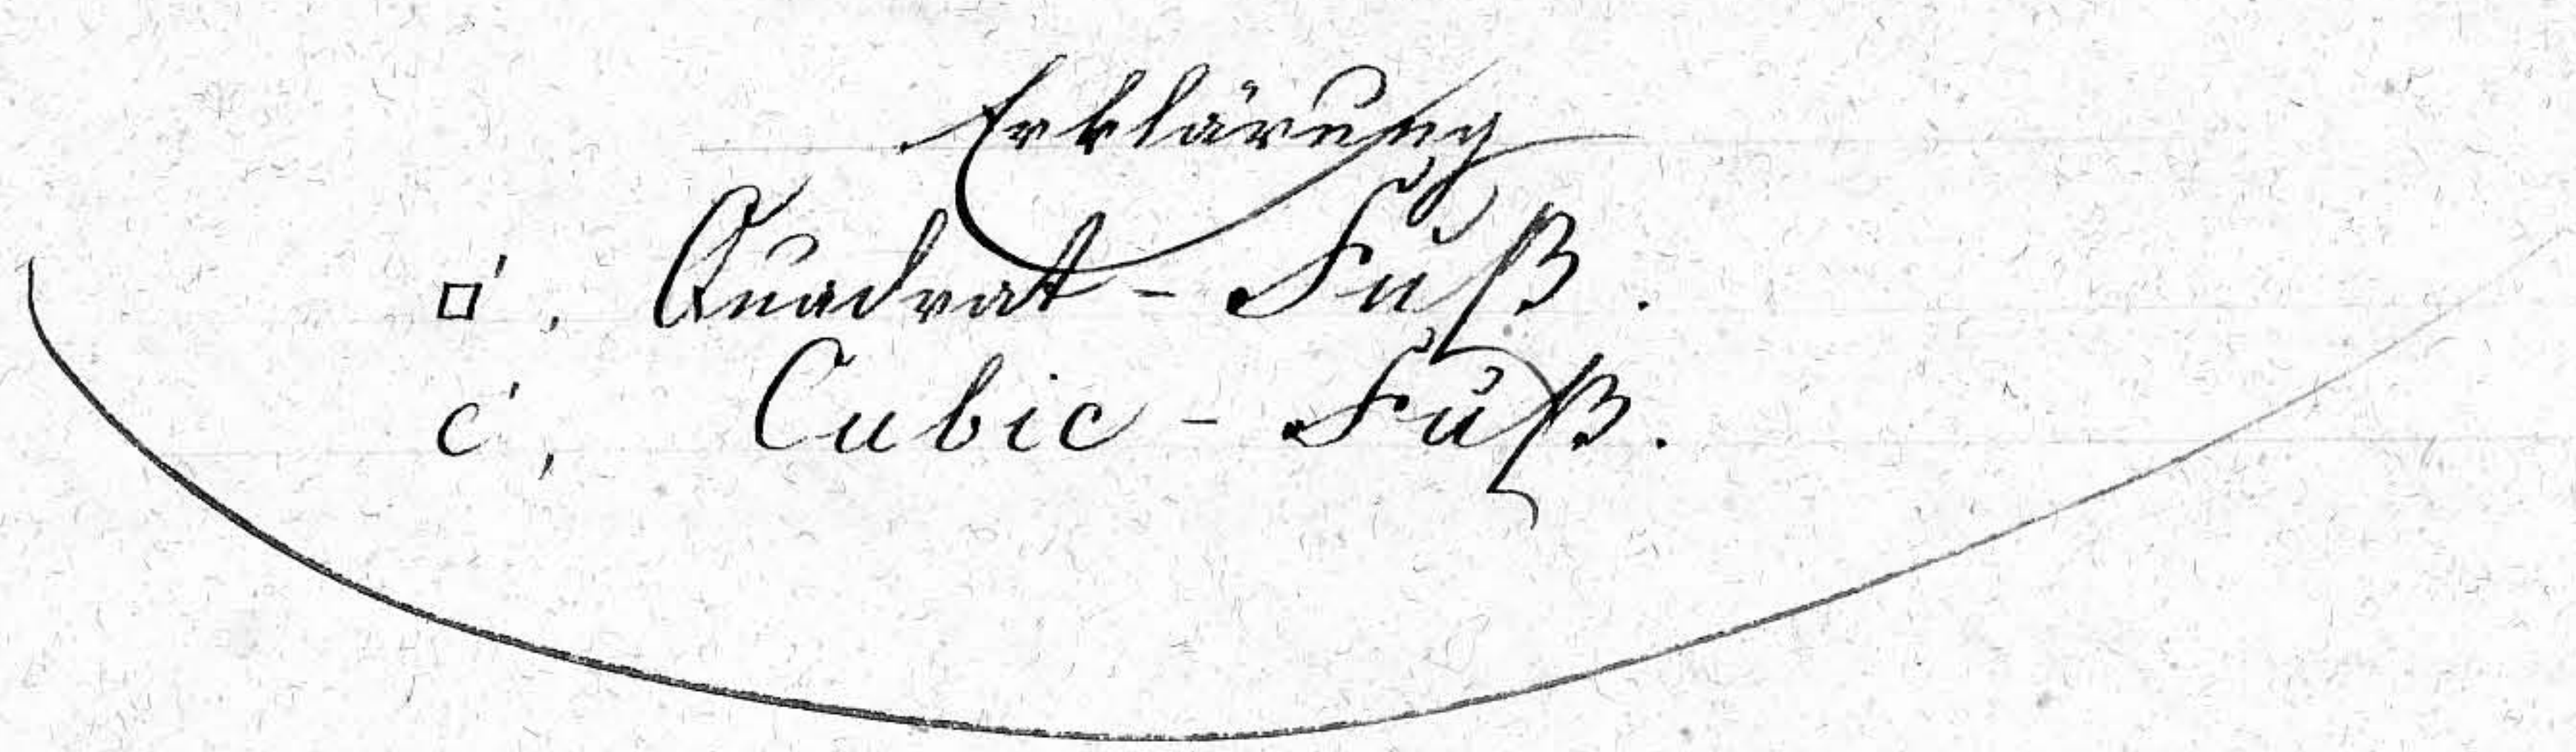 Erklärung
□', Quadrat - Fuß.
c', Cubic - Fuß.